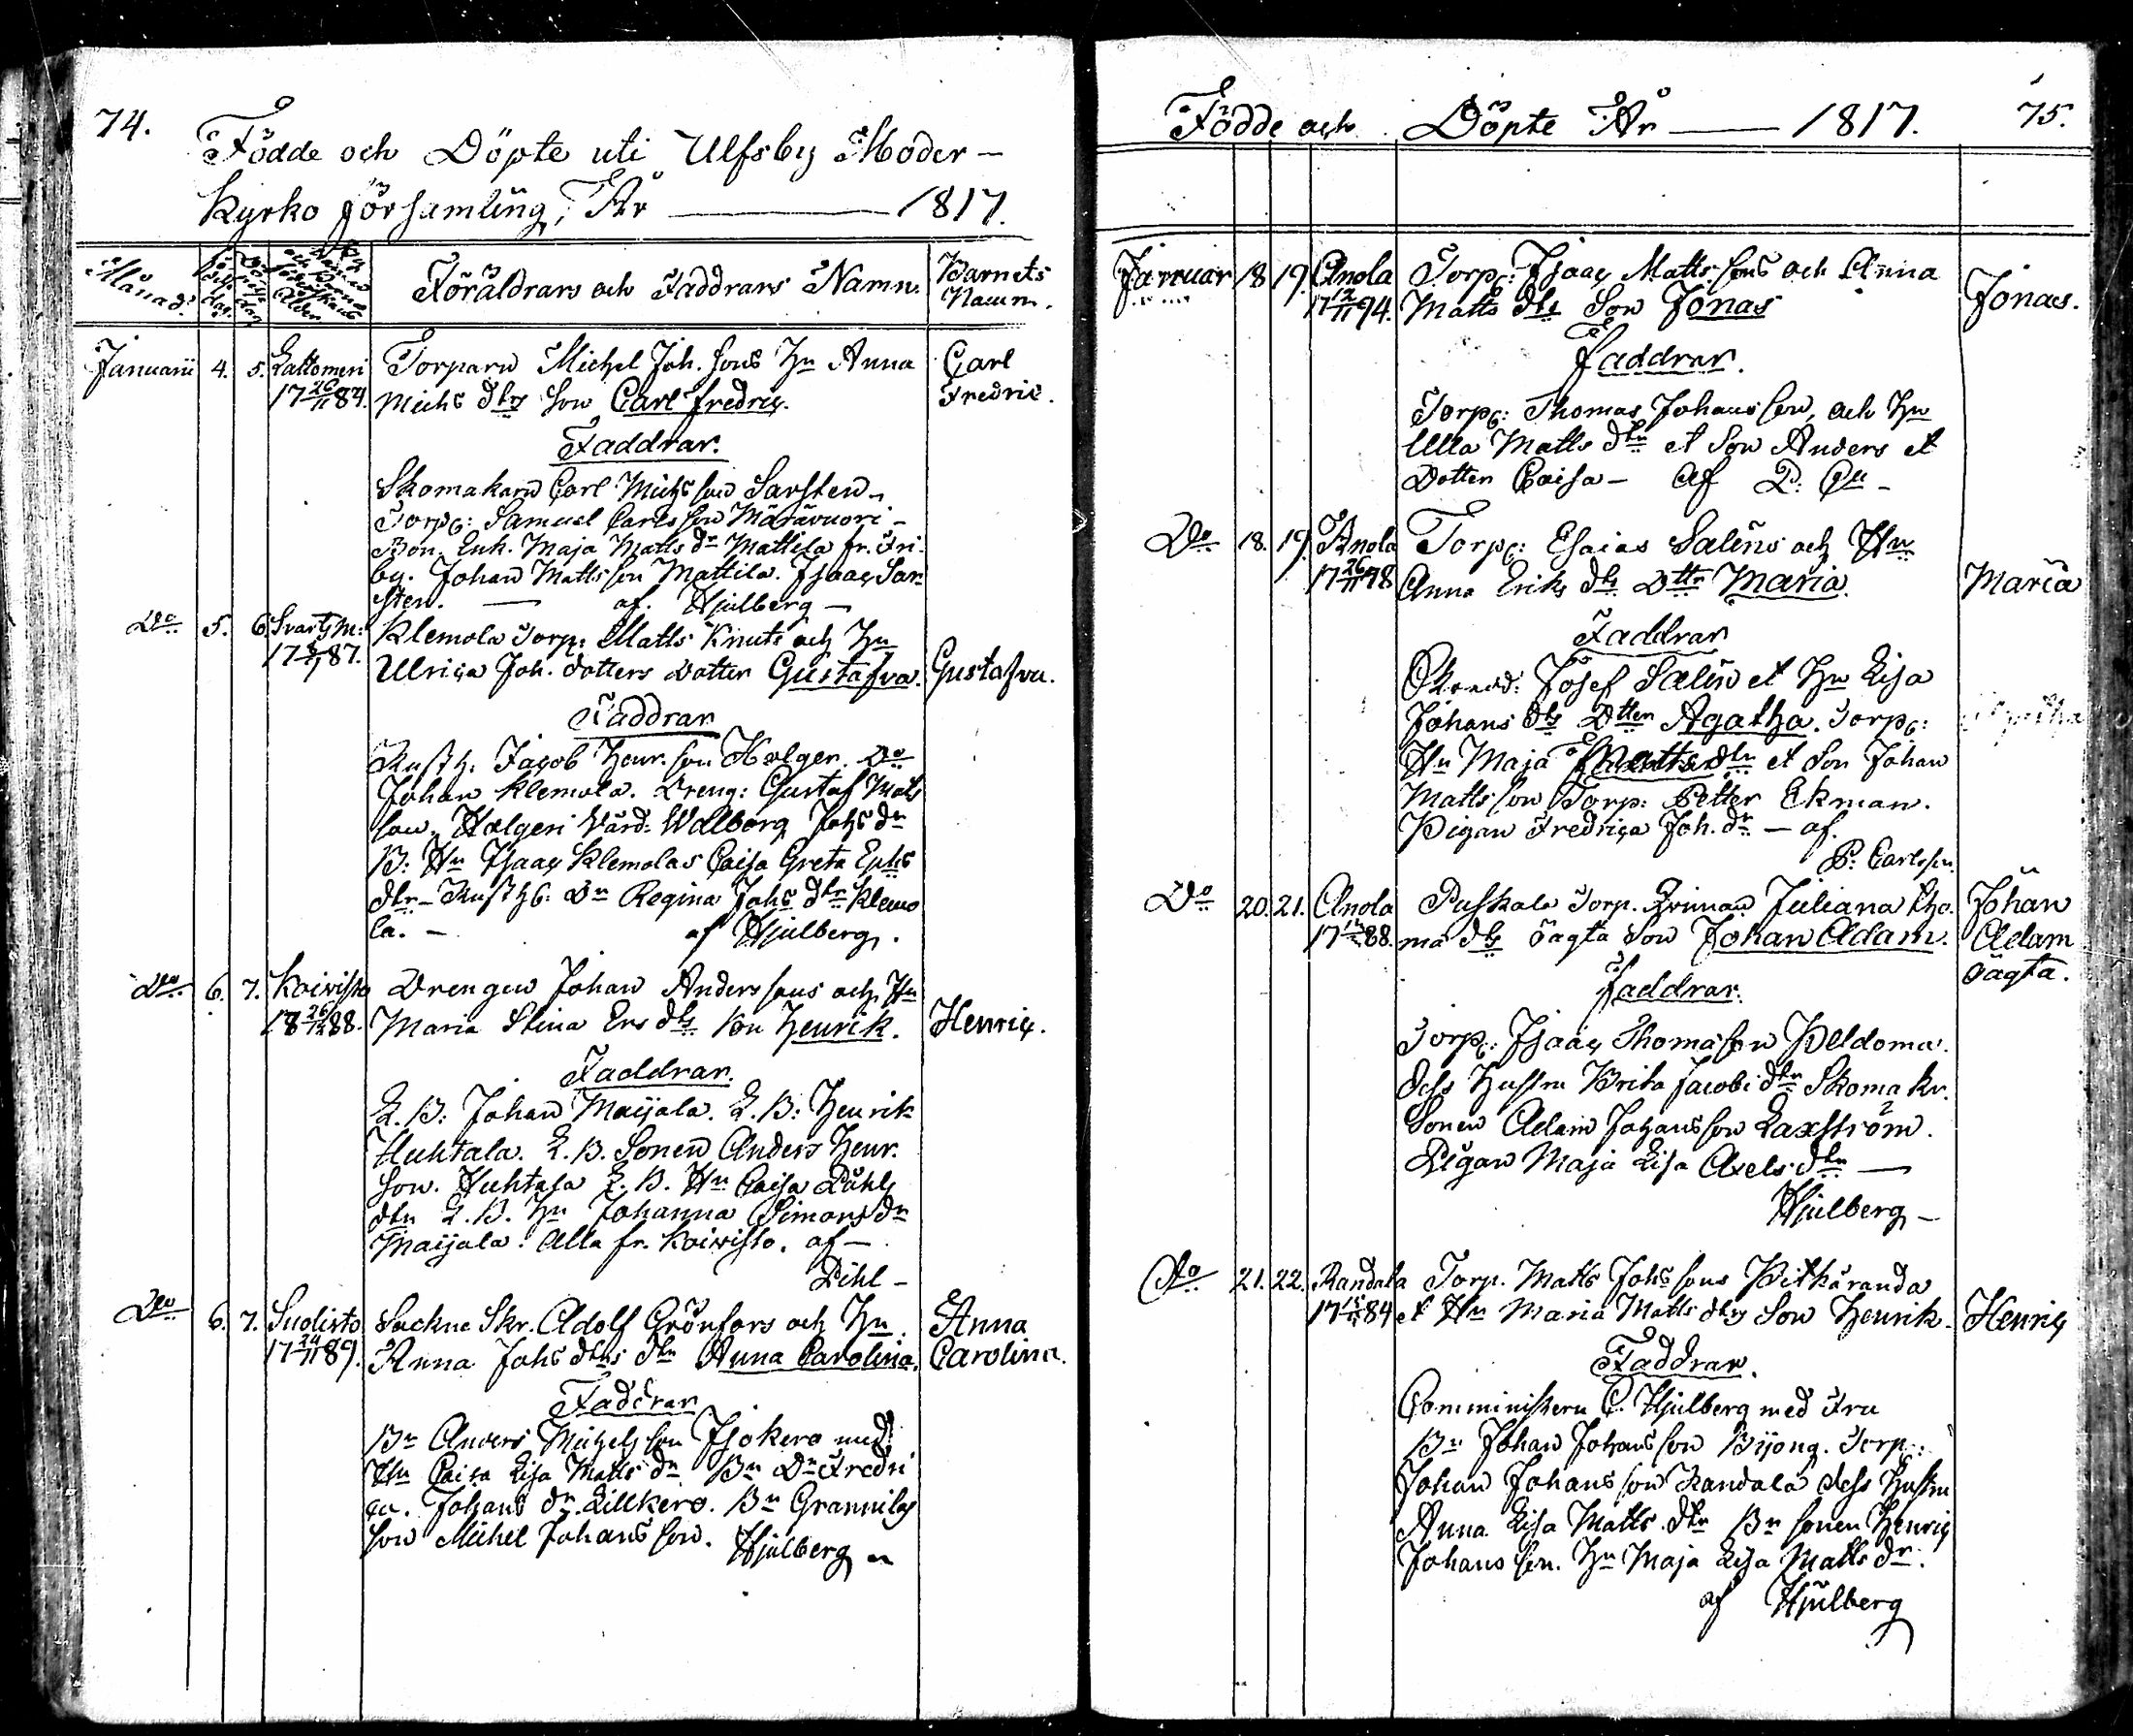 74.
Födde och Döpte uti Ulfsby Moder-
Kyrko församling, År ——— 1817.
Månad. Födelse dag. Döpelse dag Föräldrars och Faddrars Namn. Barnets Namn.
Januarii 4. 5. Lattomeri Torparn Michel Joh. sons Hu Anna Carl
17 26/11 84. Michs dtrs Son Carl Fredric. Fredric.
Faddrar.
Skomakarn Carl Michs son Sarsten,
Torp: Samuel Carlsson Märävuori-
Bon. Enk. Maja Matts dr Mattila fr. Fri-
by. Johan Mattsson Mattila. Isaac Sar-
sten. — af. Hjulberg —
Do 5. 6. Svartsm: Klemola Torp: Matts Knuts och Hu
17 87. Ulrica Joh. dotters dotter Gustafva. Gustafva.
Faddrar
Rusth. Jacob Henr. son Holger. Do
Johan Klemola. Dreng: Gustaf Mats
son, Holgeri Värd: Walborg Johs dr
B. Hu Isaac Klemolas Caisa Greta Ephs
dtr- Rusth: Dr Regina Johs dtr Klemo
la. — af Hjulberg.
Do 6. 7. Koivisto Drengen Johan Anderssons och Hu
18 26/12 88. Maria Stina Ers dtrs Son Henrik. Henric.
Faddrar.
L. B: Johan Maijala. L. B: Henrik
Huhtala. L. B. Sonen Anders Henr.
Son. Huhtala L. B. Hu Caisa Påhls
dtr L. B. Hu Johanna Simons dr
Maijala. Alla fr. Koivisto. af —
Pihl -
Do 6. 7. Suolisto Sockne Skr. Adolf Grönfors och Hu Anna
17 24/11 89. Anna Johs dtrs dtr Anna Carolina. Carolina.
Faddrar
Bn Anders Michelsson Isokero med
Hu Caisa Lisa Matts dr Bn Dr Fredri
ca. Johans dr Lillkero. Bn Grannilas
son Michel Johansson. Hjulberg
Födde och Döpte År — 1817. 75.
Januar 18 19. Anola Torp: Isaac Mattssons och Anna Jonas.
17 2/11 94. Matts dtrs Son Jonas
Faddrar.
Torp: Thomas Johansson, och Hu
Ulla Matts dtr et Son Anders et
Dotter Caisa — af
Do 18. 19. Anola Torp: Esaias Salens och Hu
17 26/11 78 Anna Eriks dtrs Dttr Maria. Maria
Faddrar
Josef Salen et Hu Lisa
Johans dtrs Dtter Agatha. Torp:
Hu Maja Matts dtr et Son Johan
Mattsson Torp: Petter Ekman.
Pigan Fredrica Joh. dr — af.
P: Carlsson.
Do 20. 21. Anola Puskala Torp. Qvinnan Juliana Tho- Johan
17 88. ma dtrs oägta Son Johan Adam. Adam
oägta.
Faddrar.
Torp: Isaac Thomasson Peldoma.
dess Hustru Brita Jacobi dtr Skomakr.
Sonen Adam Johansson Laxström.
Pigan Maja Lisa Axels dtr —
Hjulberg —
Do 21. 22. Randala Torp. Matts Johs sons Pitkäranda
17 84 et Hu Maria Matts dtrs Son Henrik. Henric
Faddrar.
Comministern C. Hjulberg med Fru
Bn Johan Johansson Bijong. Torp:
Johan Johansson Randala dess Hustru
Anna Lisa Matts dtr Bn sonen Henric
Johansson. Hu Maja Lisa Matts dr.
af Hjulberg